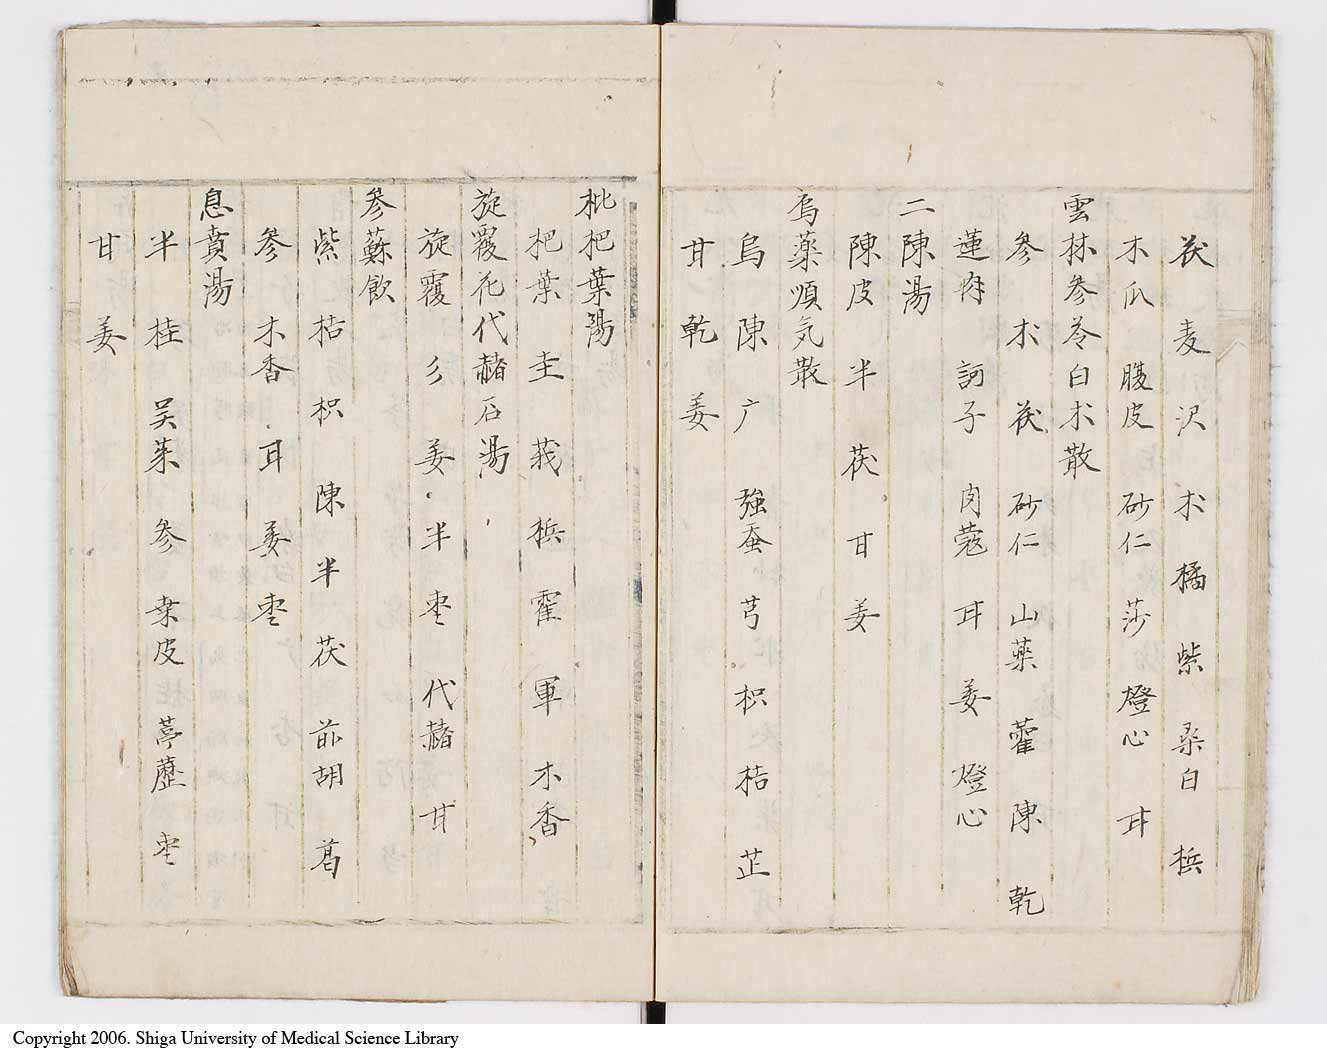 茯 麦 沢 朮 橘 紫 桑白 梹
木瓜 腹皮 砂仁 莎 燈心 甘
雲林参苓白朮散
参 朮 茯 砂仁 山藥 藿 陳 乾
蓮肉 訶子 肉蔲 甘 姜 燈心
二陳湯
陳皮 半 茯 甘 姜
烏藥順気散
烏 陳 广 強蚕 芎 枳 桔 芷
甘 乾 姜
枇杷葉湯
杷葉 圭 莪 梹 霍 軍 木香
旋覆花代赭石湯
旋覆 彡 姜 半 枣 代赭 甘
参蘇飲
紫 桔 枳 陳 半 茯 前胡 葛
参 木香 甘 姜 枣
息賁湯
半 桂 吴茱 参 桒皮 葶藶 枣
甘 姜
Copyright 2006. Shiga University of Medical Science Library